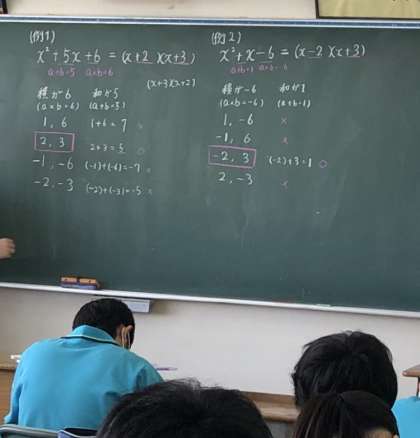 (例1)
x²+5x+6 = (x+2)(x+3)
a+b=5 a×b=6
(x+3)(x+2)
積が6 和が5
(a×b=6) (a+b=5)
1, 6 1+6=7 ×
2, 3 2+3=5 ○
-1, -6 (-1)+(-6)=-7 ×
-2, -3 (-2)+(-3)=-5 ×
(例2)
x²+x-6 = (x-2)(x+3)
a+b=1 a×b=-6
積が-6 和が1
(a×b=-6) (a+b=1)
1, -6 ×
-1, 6 ×
-2, 3 (-2)+3=1 ○
2, -3 ×